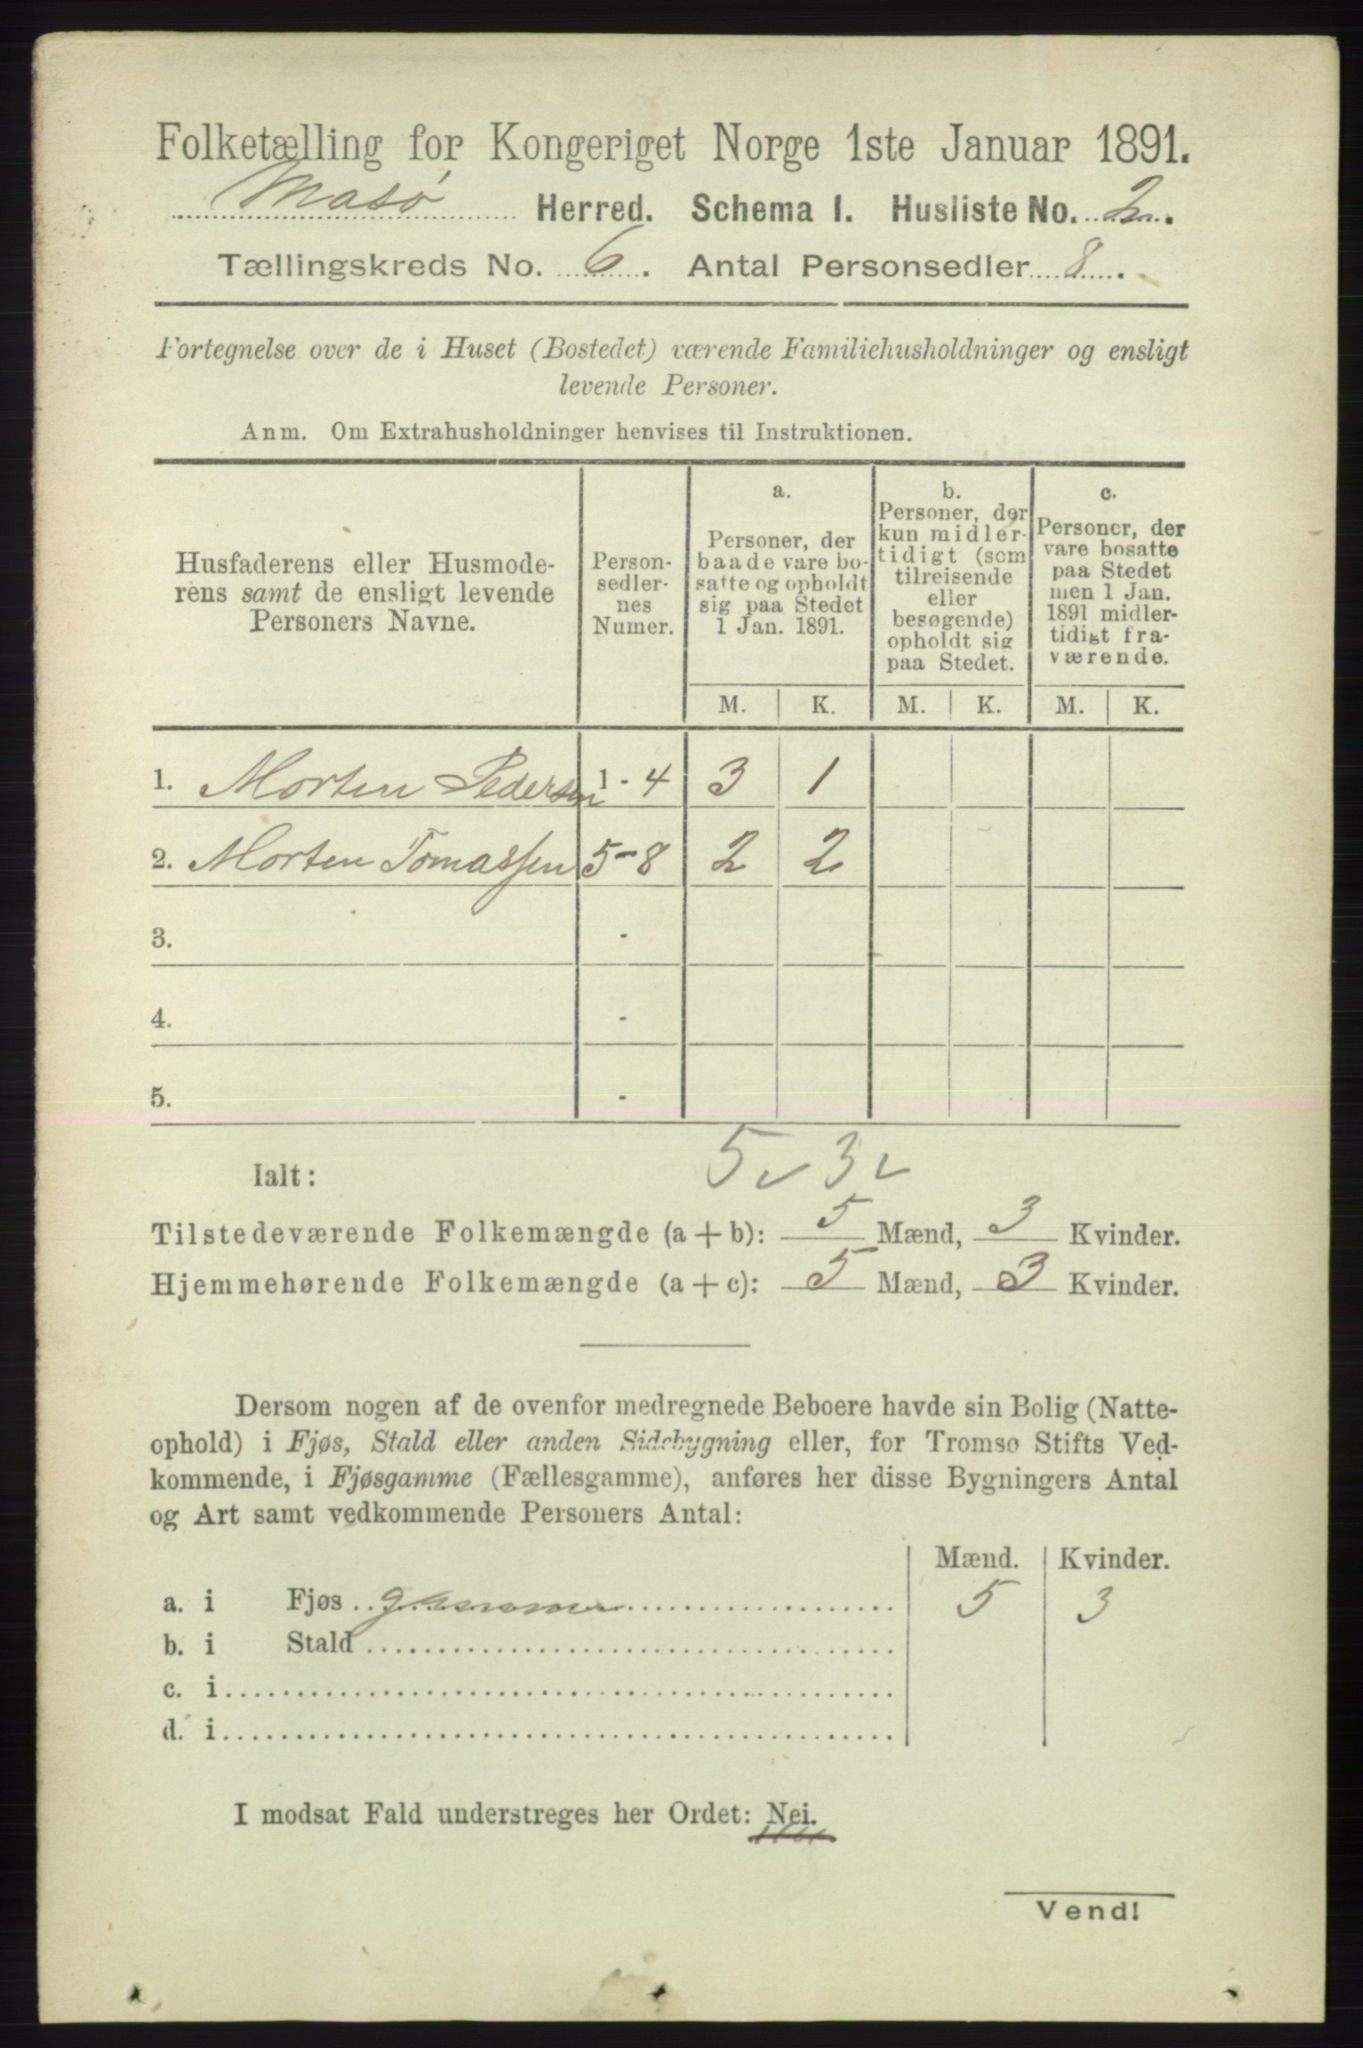 Folketælling for Kongeriget Norge 1ste Januar 1891.
Masø Herred. Schema I. Husliste No. 2.
Tællingskreds No. 6. Antal Personsedler 8.
Fortegnelse over de i Huset (Bostedet) værende Familiehusholdninger og ensligt
levende Personer.
Anm. Om Extrahusholdninger henvises til Instruktionen.
Husfaderens eller Husmode-
rens samt de ensligt levende
Personers Navne.
Person-
sedler-
nes
Numer.
a.
Personer, der
baade vare bo-
satte og opholdt
sig paa Stedet
1 Jan. 1891.
b.
Personer, der
kun midler-
tidigt (som
tilreisende
eller
besøgende)
opholdt sig
paa Stedet.
c.
Personer, der
vare bosatte
paa Stedet
men 1 Jan.
1891 midler-
tidigt fra-
værende.
M. K. M. K. M. K.
1. Morten Pedersen 1-4 3 1
2. Morten Tomassen 5-8 2 2
3. -
4. -
5. -
Ialt: 5 3
Tilstedeværende Folkemængde (a + b): 5 Mænd, 3 Kvinder.
Hjemmehørende Folkemængde (a + c): 5 Mænd, 3 Kvinder.
Dersom nogen af de ovenfor medregnede Beboere havde sin Bolig (Natte-
ophold) i Fjøs, Stald eller anden Sidebygning eller, for Tromsø Stifts Ved-
kommende, i Fjøsgamme (Fællesgamme), anføres her disse Bygningers Antal
og Art samt vedkommende Personers Antal:
Mænd. Kvinder.
a. i Fjøs gamme 5 3
b. i Stald
c. i
d. i
I modsat Fald understreges her Ordet: Nei.
Vend!